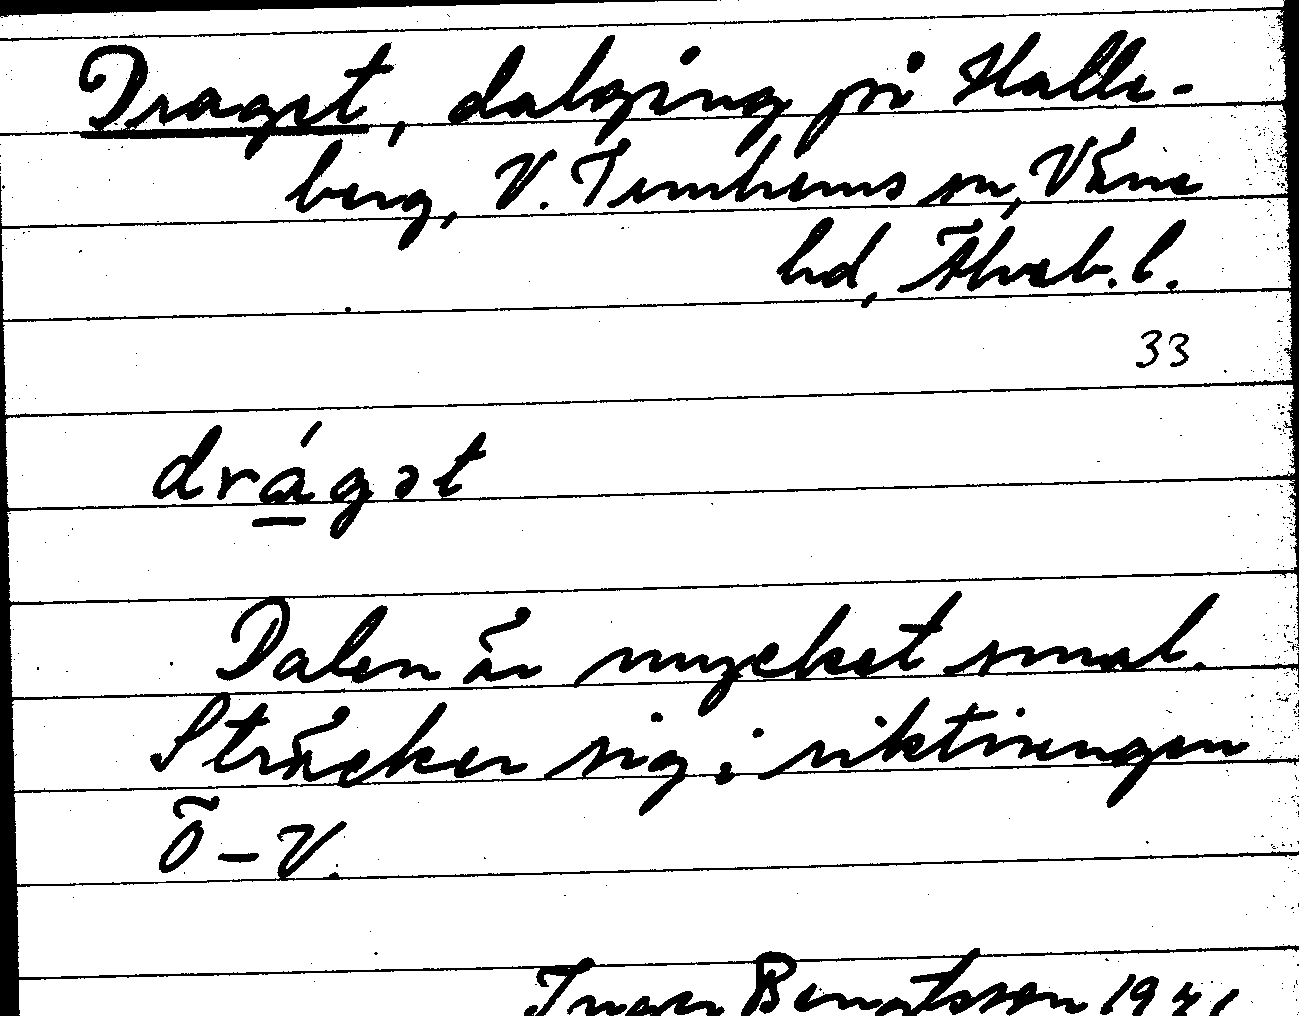 Draget, dalgång på Halle-
berg, V. Tunhems sn, Väne
hd, Älvsb. l.
33
drágət
Dalen är mycket smal.
Sträcker sig i riktningen
Ö-V.
Inger Bengtsson 19